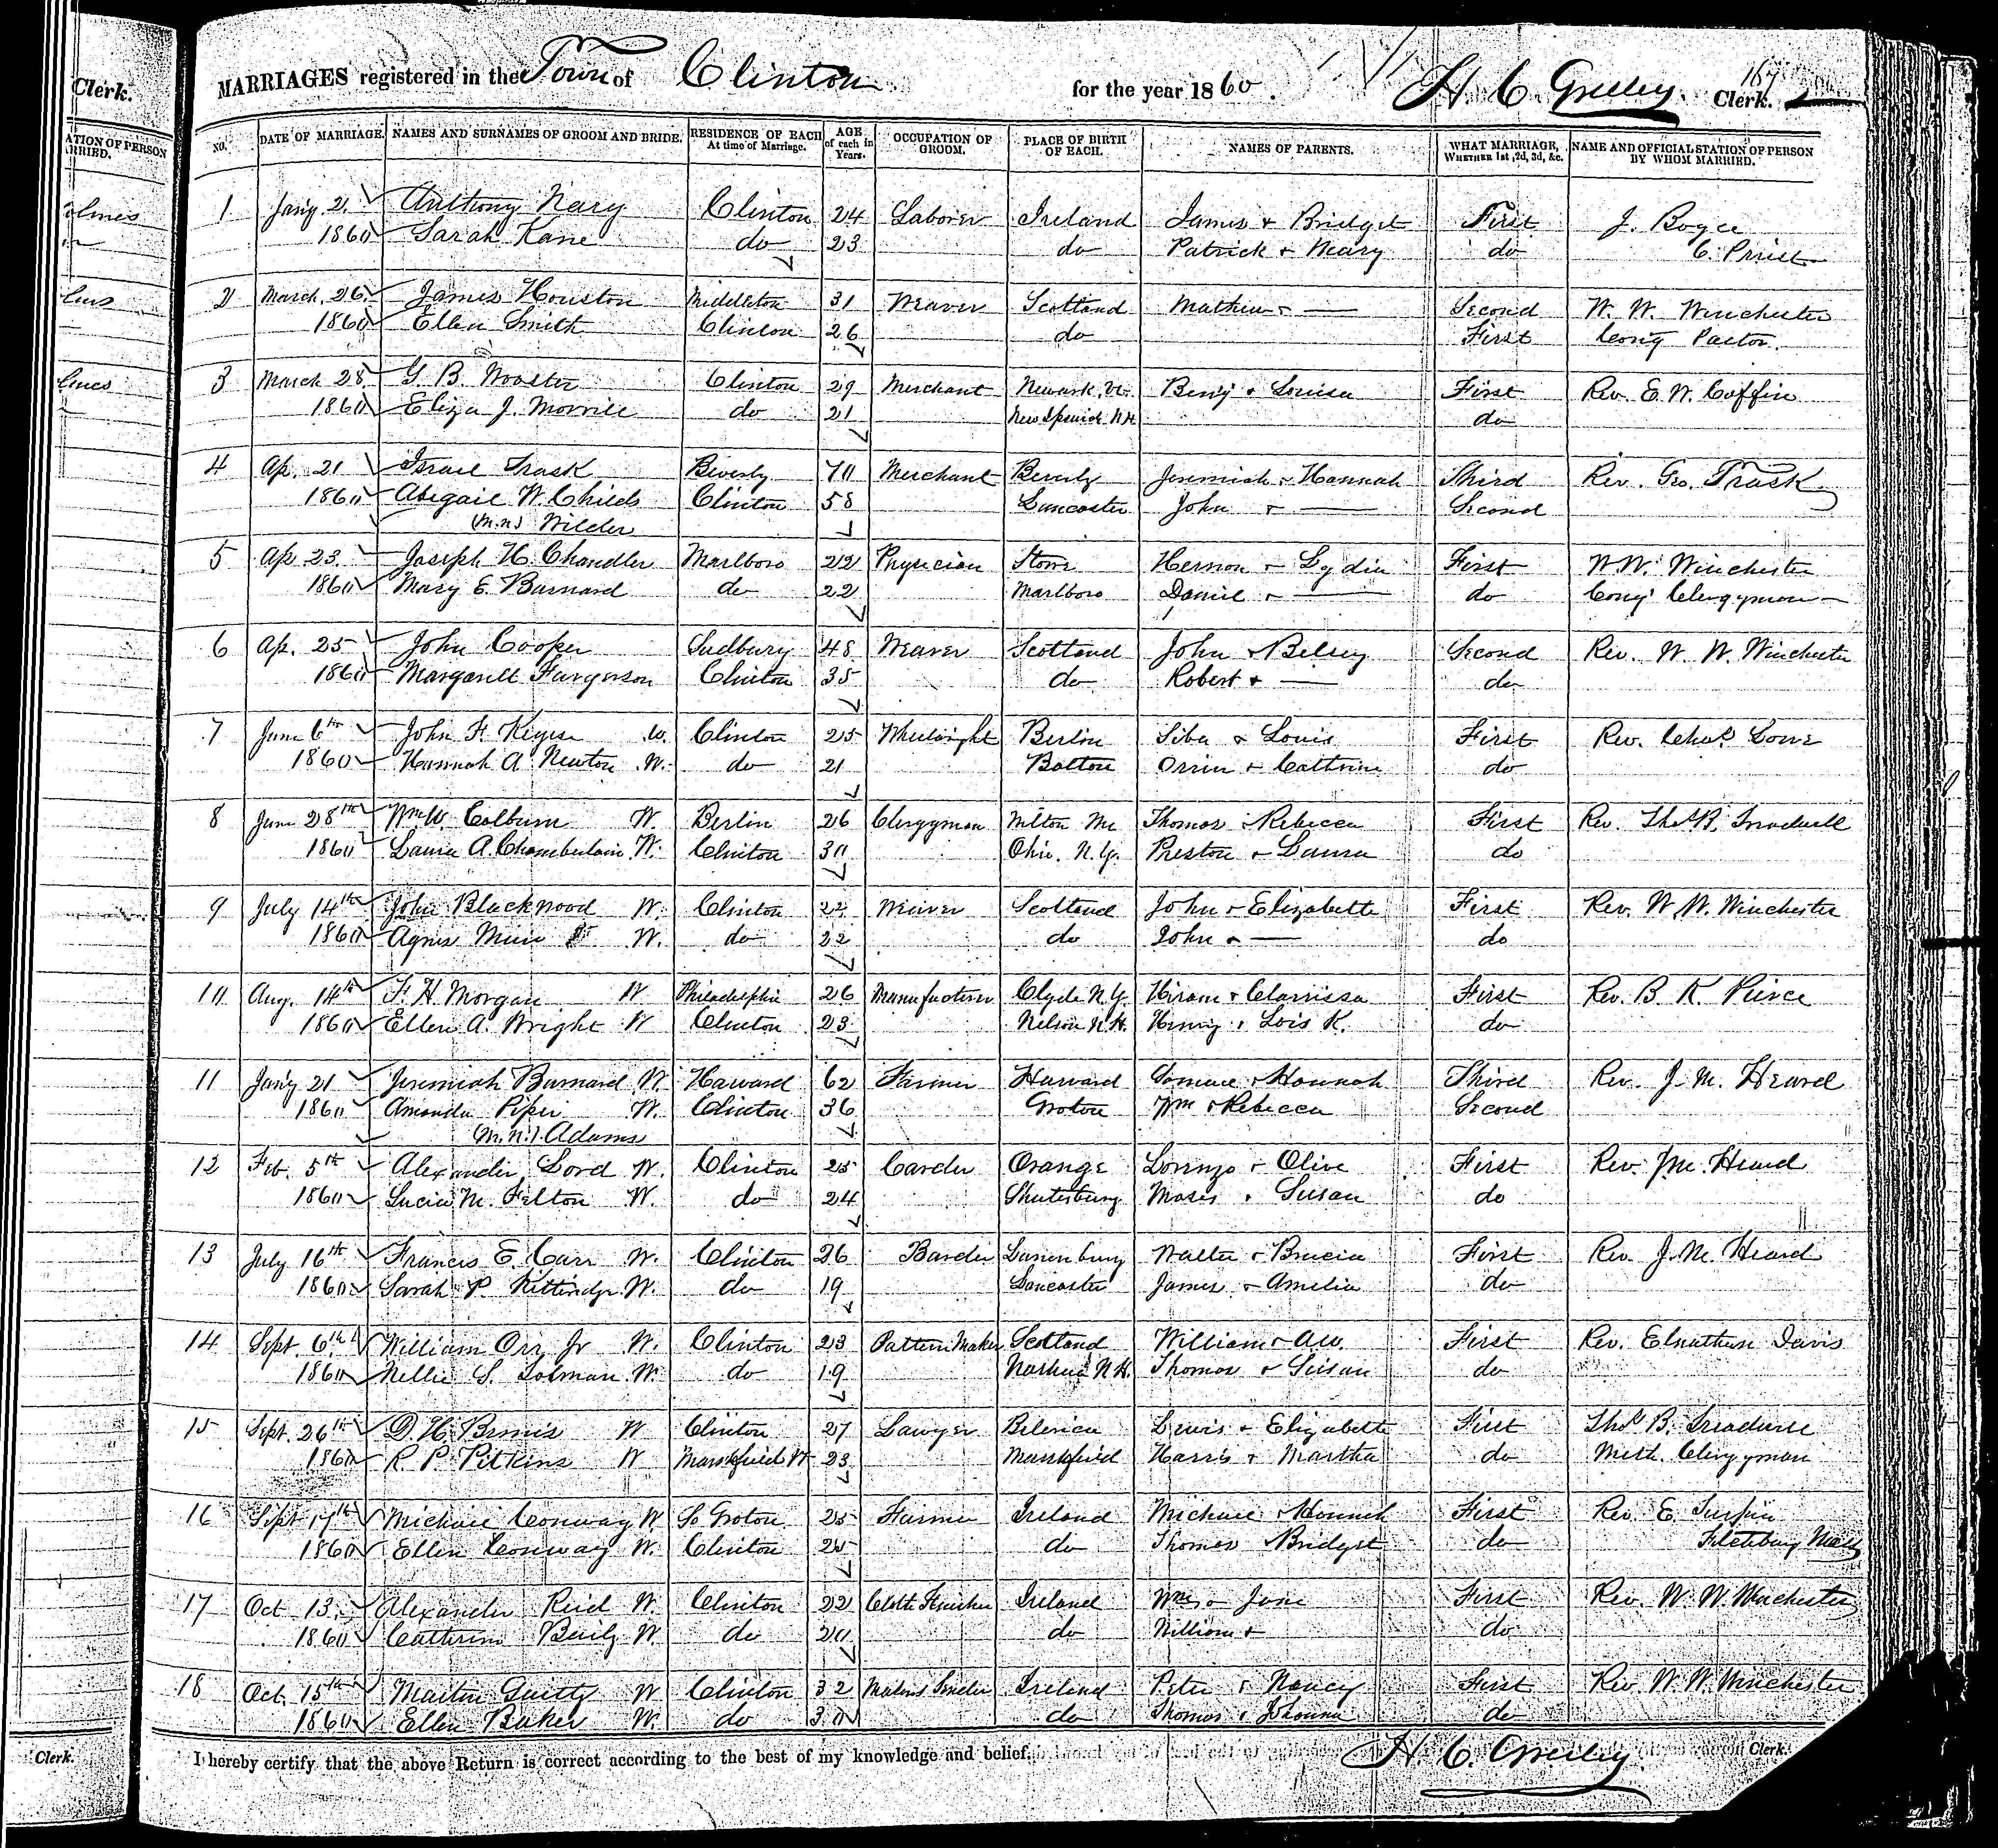 Clerk.
MARRIAGES registered in the Town of Clinton for the year 1860. H. C. Greeley. Clerk.
167
ATION OF PERSON
ARRIED.
NO. DATE OF MARRIAGE. NAMES AND SURNAMES OF GROOM AND BRIDE. RESIDENCE OF EACH At time of Marriage. AGE of each in Years. OCCUPATION OF GROOM. PLACE OF BIRTH OF EACH. NAMES OF PARENTS. WHAT MARRIAGE, WHETHER 1st, 2d, 3d, &c. NAME AND OFFICIAL STATION OF PERSON BY WHOM MARRIED.
1 Jany 2. Anthony Nary Clinton 24 Laborer Ireland James & Bridget First J. Boyce
1860 Sarah Kane do 23 do Patrick & Mary do C. Priest
2 March 26. James Houston Middleton 31 Weaver Scotland Mathew & — Second W. W. Winchester
1860 Ellen Smith Clinton 26 do First Cong Pastor.
3 March 28. G. B. Wooster Clinton 29 Merchant Newark, Vt. Benj & Louisa First Rev. E. W. Coffin
1860 Eliza J. Morrill do 21 New Ipswich N.H. do
4 Ap. 21 Israel Trask Beverly 70 Merchant Beverly Jeremiah & Hannah Third Rev. Geo. Trask
1860 Abigail W. Childs Clinton 58 Lancaster John & — Second
(m.n.) Wilder
5 Ap 23. Joseph H. Chandler Marlboro 22 Physician Stowe & Lydia First W. W. Winchester
1860 Mary E. Barnard do 22 Marlboro Daniel & — do Cong' Clergyman
6 Ap. 25 John Cooper Sudbury 48 Weaver Scotland John & Betsey Second Rev. W. W. Winchester
1860 Margarett Furgerson Clinton 35 do Robert & — do
7 June 6th John F. Keyes W. Clinton 25 Wheelwright Berlin & Louis First Rev. Chas. Lowe
1860 Hannah A. Newton W. do 21 Bolton Orrin & Cathrine do
8 June 28th Wm W. Colburn W. Berlin 26 Clergyman Milton Me Thomas & Rebecca First Rev. Thos. B. Treadwell
1860 Laura A. Chamberlain W. Clinton 30 Ohio, N.Y. Preston & Laura do
9 July 14th John Blackwood W. Clinton 22 Weaver Scotland John & Elizabeth First Rev. W. W. Winchester
1860 Agnes Muir W. do 22 do John & — do
10 Aug. 14th F. H. Morgan W Philadelphia 26 Manufacturer Clyde N.Y. Hiram & Clarrissa First Rev. B. K. Peirce
1860 Ellen A. Wright W Clinton 23 Nelson N.H. Henry & Lois K. do
11 Jany 21 Jeremiah Barnard W. Harvard 62 Farmer Harvard & Hannah Third Rev. J. M. Heard
1860 Amanda Piper W. Clinton 36 Groton Wm & Rebecca Second
(m.n.) Adams
12 Feb. 5th Alexander Lord W. Clinton 25 Carder Orange Lorenzo & Olive First Rev. J. M. Heard
1860 Lucia M. Felton W. do 24 Shutesbury Moses & Susan do
13 July 16th Francis E. Carr W. Clinton 26 Lunenburg Walter & First Rev. J. M. Heard
1860 Sarah P. Kittredge W. do 19 Lancaster James & Amelia do
14 Sept. 6th William Orr Jr W. Clinton 23 Pattern Maker Scotland William & First Rev. Elnathan Davis
1860 Nellie S. Tolman W. do 19 Nashua N.H. Thomas & Susan do
15 Sept. 26th D. H. Bemis W Clinton 27 Lawyer Bilerica Lewis & Elizabeth First Thos B. Treadwell
1860 R. P. Pitkins W Marshfield Vt 23 Marshfield Harris & Martha do Meth. Clergyman
16 Sept 17th Michael Conway W. So Groton 25 Farmer Ireland Michael & Hannah First Rev. E. Turpin
1860 Ellen Conway W. Clinton 25 do Thomas Bridget do Fitchburg Mass
17 Oct 13. Alexander Reid W. Clinton 22 Cloth Finisher Ireland Wm & Jane First Rev. W. W. Winchester
1860 Catherine W do 20 do William & do
18 Oct. 15th Martin W Clinton 32 Ireland Peter & Nancy First Rev W. W. Winchester
1860 Ellen Baker W. do 30 do Thomas & Johanna do
I hereby certify that the above Return is correct according to the best of my knowledge and belief.
H. C. Greeley. Clerk.
Clerk.